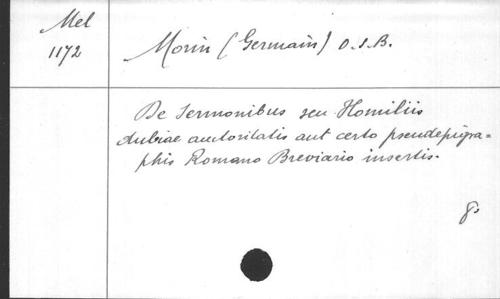 Mel
1172
Morin (Germain) O.S.B.
De Sermonibus seu Homiliis
dubiae auctoritatis aut certo pseudepigra=
phis Romano Breviario insertis.
8°